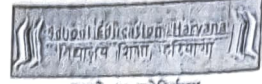 School Education Haryana
विद्यालय शिक्षा, हरियाणा